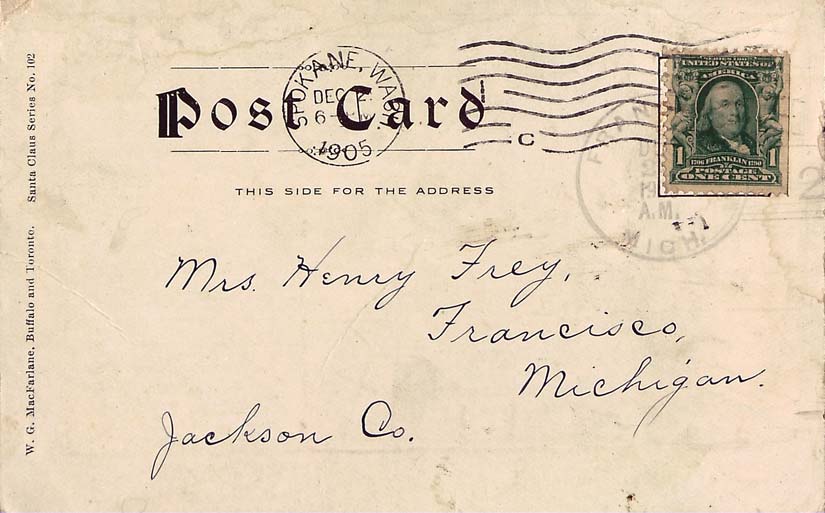 SPOKANE, WASH.
DEC 2
6
1905
Post Card
C
SERIES 1902
UNITED STATES OF
AMERICA
1 1706 FRANKLIN 1790 1
POSTAGE
ONE CENT
FRAN
19
A.M.
MICH.
2
THIS SIDE FOR THE ADDRESS
Mrs. Henry Frey,
Francisco,
Michigan.
Jackson Co.
W. G. MacFarlane, Buffalo and Toronto. Santa Claus Series No. 102